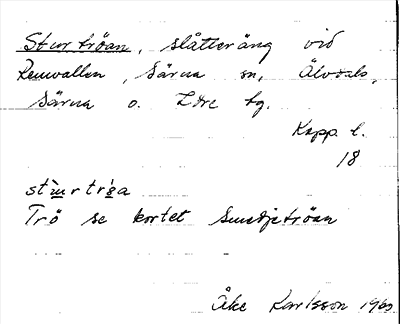 Sturtröan, slåtteräng vid
Renvallen, Särna sn, Älvdals,
Särna o. Idre tg.
Kopp. l.
18
Trö se kortet Smedjetröan
Åke Karlsson 1960